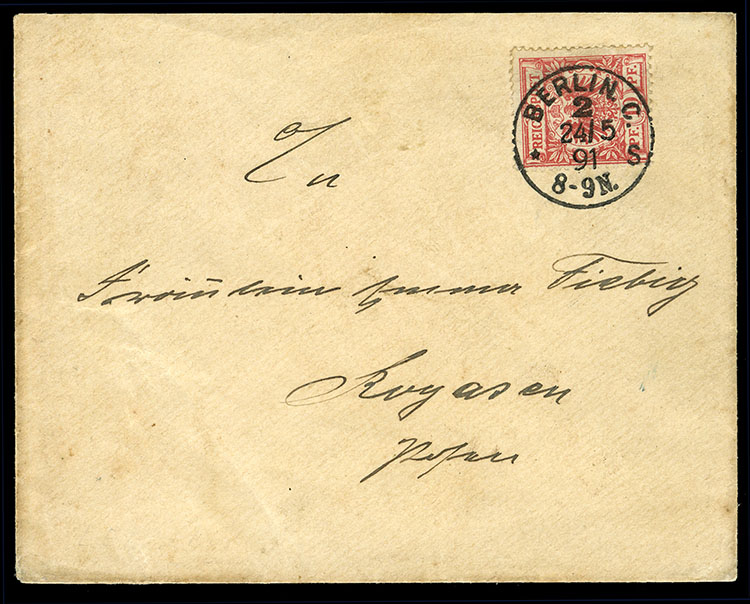 BERLIN. C.
2
24/5
91 S
8-9N.
REICHSPOST
PF. PF.
An
Fräulein Emma Fiebig
Rogasen
Posen